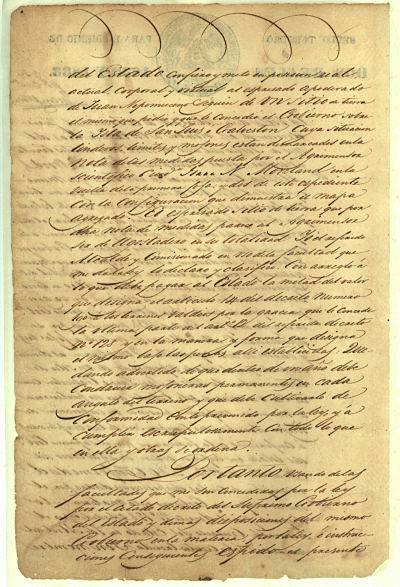 del Estado Confiero y meto en posesion real
actual, Corporal, y virtual al espresado apoderado
de Juan Nepomuceno Seguin de Un Sitio de tierra
el mismo que pidio y que le concedio el Gobierno sobre
la Isla de San Luis o Galveston Cuya situacion
linderos, limites y mojones estan en la
Nota de las medidas puesta por el Agrimensor
Scientifico Ciud. Isaac N. Moreland en la
vuelta de la primera foja, y dos de este espediente
con la Configuracion que demuestra el mapa
agregado. El espresado sitio de tierra que por
dha nota de medidas, para el Agrimensor
ser de Agostadero en su totalidad. Yo el referido
Alcalde y Comisionado en uso de la facultad que
me da la ley lo declaro y clasifico. Con arreglo á
lo que debe pagar al Estado la mitad del valor
que designa el articulo 14 del decreto Numero
por la gracia que le Concede
la ultima parte del arto. 12 del referido decreto
No. 128 y en la manera y forma que designa
el mismo bajo las penas alli establecidas. Que
dando advertido de que dentro de un año debe
Construir mojoneras permanentes en cada
angulo del terreno y que debe Cultivarlo de
Conformidad Con lo prevenido por la ley y á
Cumplir escrupulosamente Con todo lo que
en ella y otras se ordena.
Por tanto usando de las
facultades que me son concedidas por la ley
por el Citado decreto del Supremo Gobierno
del Estado y demas disposiciones del mismo
Gobierno en la materia, por la ley é instruc-
ciones Consiguientes espido el presente